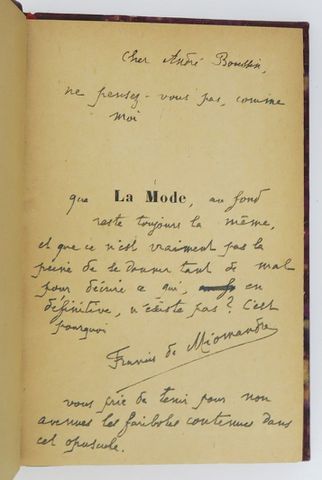 Cher André
ne pensez-vous pas, comme
moi
que La Mode, au fond
reste toujours la même,
et que ce n'est vraiment pas la
peine de se donner tant de mal
pour décrire ce qui, en
définitive, n'existe pas ? C'est
pourquoi
Francis de Miomandre
vous prie de tenir pour non
avenues les fariboles contenues dans
cet opuscule.